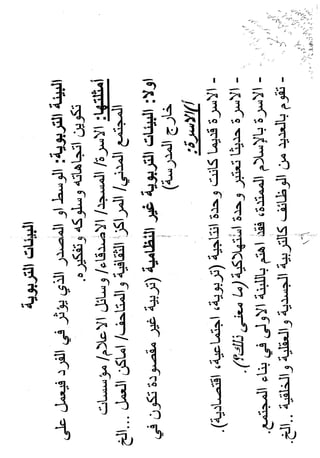 البيئات التربوية
البيئة التربوية: الوسط او المصدر الذي يؤثر في الفرد فيعمل على
تكوين اتجاهاته وسلوكه وتفكيره.
أمثلتها: الاسرة/ المسجد/ الاصدقاء/ وسائل الاعلام/ مؤسسات
المجتمع المدني/ المراكز الثقافية والمتاحف/ اماكن العمل ...الخ
اولا: البيئات التربوية غير النظامية (تربية غير مقصودة تكون في
خارج المدرسة)
1/الاسرة:
- الاسرة قديما كانت وحدة انتاجية (تربوية، اجتماعية، اقتصادية).
- الاسرة حديثا تعتبر وحدة استهلاكية (ما معنى ذلك؟).
- الاسرة بالإسلام الممتدة، فقد اهتم باللبنة الاولى في بناء المجتمع.
- تقوم بالعديد من الوظائف كالتربية الجسدية والعقلية والخلقية ..الخ.